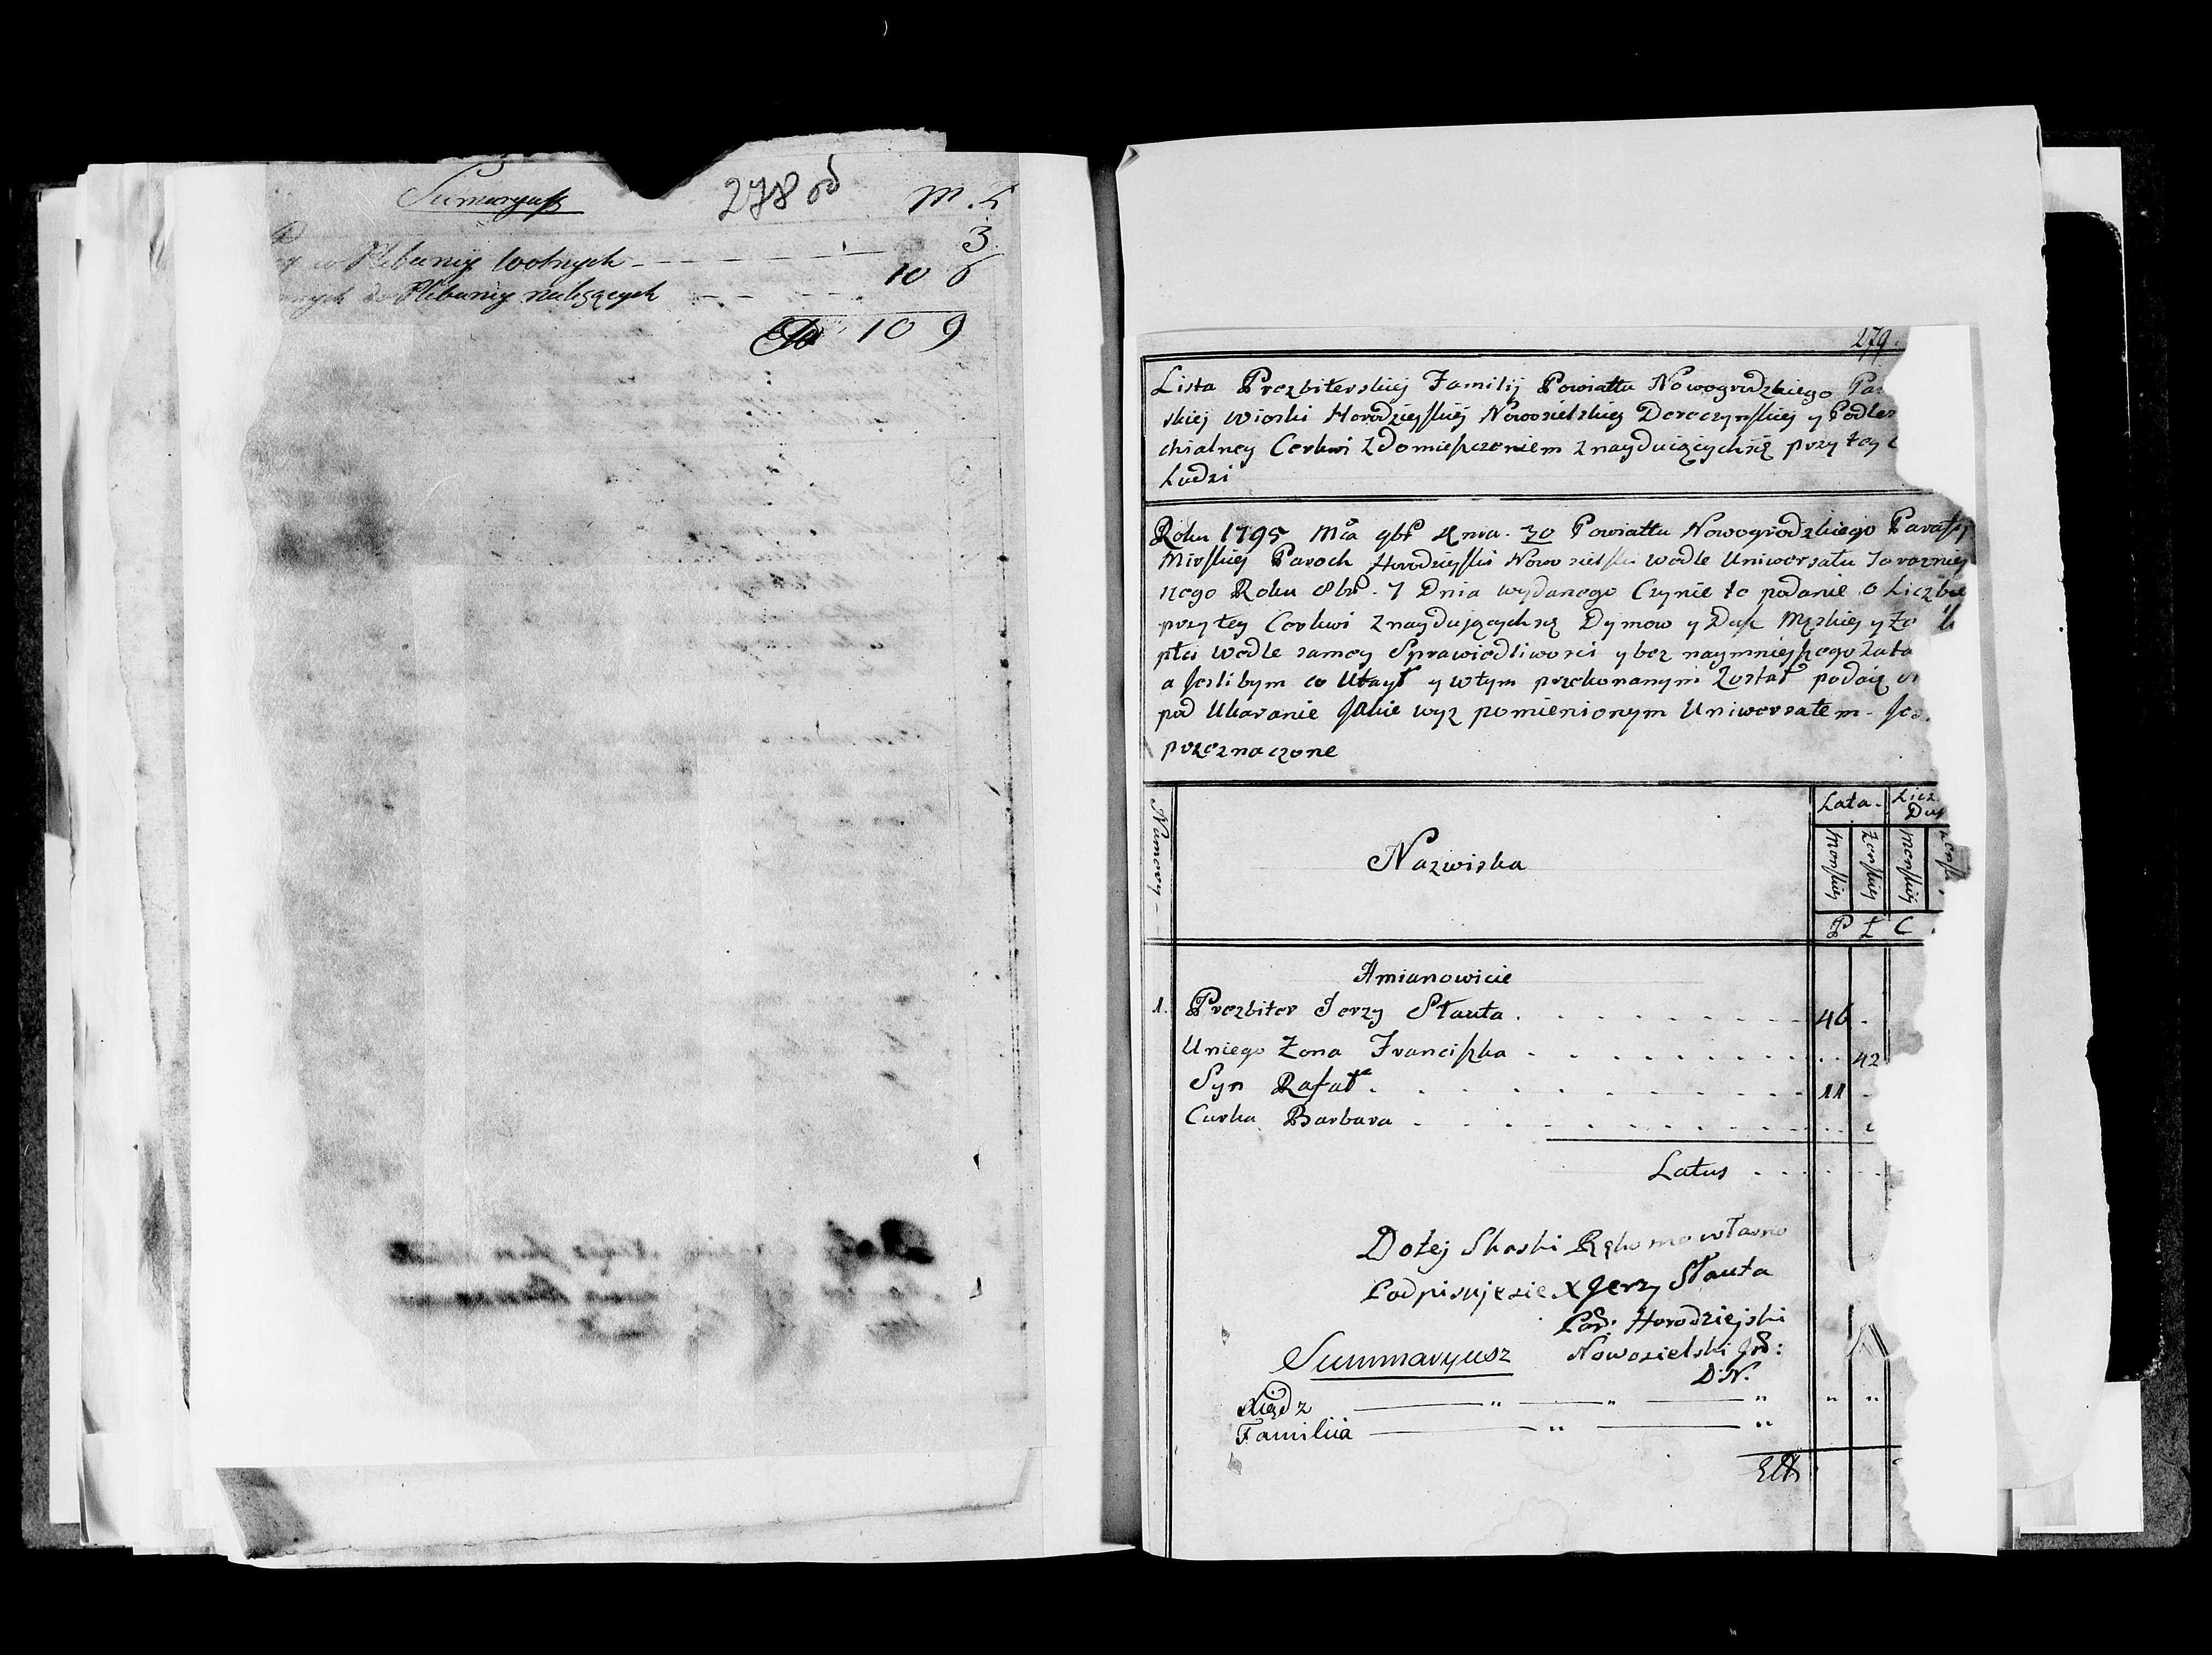 Sumaryusz
278 od
M. Ż
3
w Plebanij wolnych
10 6
do Plebanij należących
10 9
279.
Lista Prezbiterskiej Familij Powiattu Nowogrodzkiego Par
skiej Wioski Horodziejskiej Nowosielskiej Doroczynskiej y Podles
chialney Cerkwi z Domieszczeniem znayduiących się przy tey
Ludzi
Roku 1795 Mca 9br Dnia 30 Powiattu Nowogrodzkiego Parafij
Mirskiej Paroch Horodziejski Nowosielski wedle Uniwersału Terazniej
szego Roku 8br. 7 Dnia wydanego Czynie to podanie o Liczbie
przy tey Cerkwi znaydujących się Dymow y Dusz Męskiej y Że
płci wedle samey Sprawiedliwosci y bez naymniejszego Zata
a Jeslibym co Utaył y wtym przekonanym Został podaię
pod Ukaranie Jakie wyz pomienionym Uniwersałem Jes
przeznaczone
Numery
Nazwiska
Lata. Licz.
Dus
Męskiej
Żeńskiej
Męskiej
P Ł C
Amianowicie
1. Prezbiter Jerzy Słauta 46
Uniego Żona Franciszka 42
Syn Rafał 11
Curka Barbara
Latus
Do tej Skaski Ręko mo własno
Podpisuje sie X Jerzy Słauta
Par: Horodziejski
Summaryusz
Nowosielski
D: N.
Xiądz
Familiia